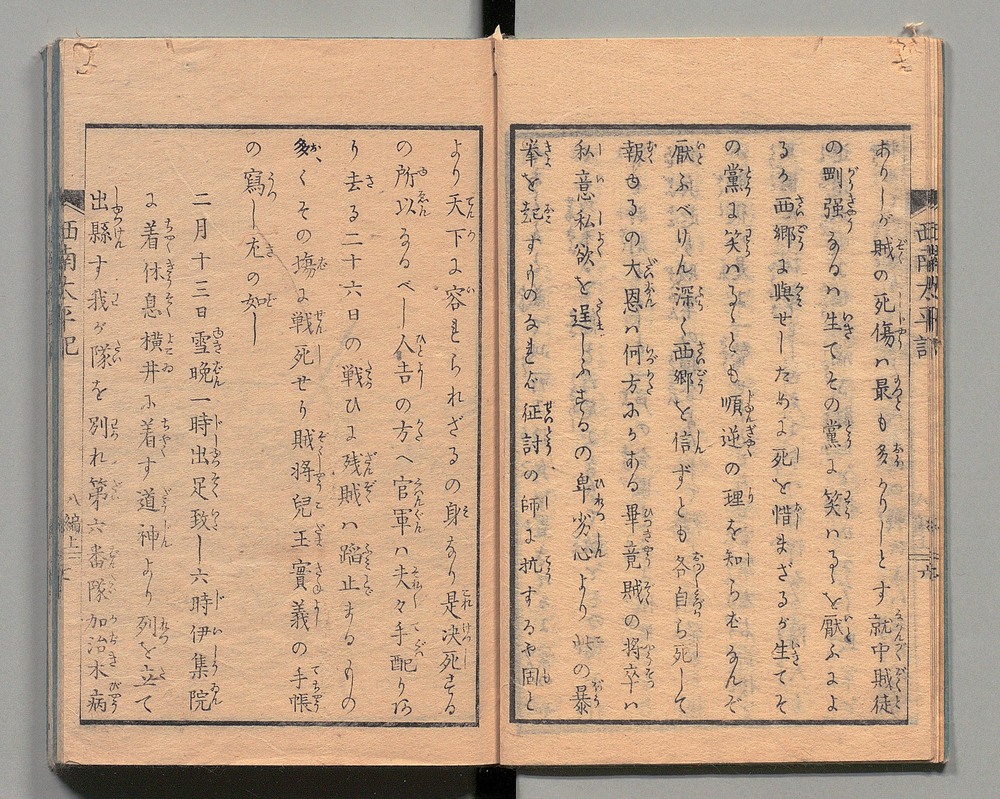 ありしが賊の死傷ハ最も多かりしとす就中賊徒
の剛强なるハ生てその黨に笑ハるゝを厭ふによ
るか西郷に與せしために死を惜まざるが生てそ
の黨に笑ハるゝとも順逆の理を知らむなんぞ
厭ふべけん深く西郷を信ずとも各自ら死して
報もるの大恩ハ何方にかある畢竟賊の将卒ハ
私意私欲を逞しふするの卑劣心より此の暴
拳を起すものなれバ征討の師に抗するや固と
より天下に容れられざるの身なり是决死する
の所以なるべし人吉の方へ官軍ハ夫々手配り
り去る二十六日の戦ひに残賊ハ蹈止まるもの
多くその塲に戦死せり賊将兒玉實義の手帳
の寫し左の如し
二月十三日雪晩一時出足致し六時伊集院
に着休息横井に着す道神より列を立て
出縣す我が隊を別れ第六番隊加治木病
西南太平記
西南太平記
八編上